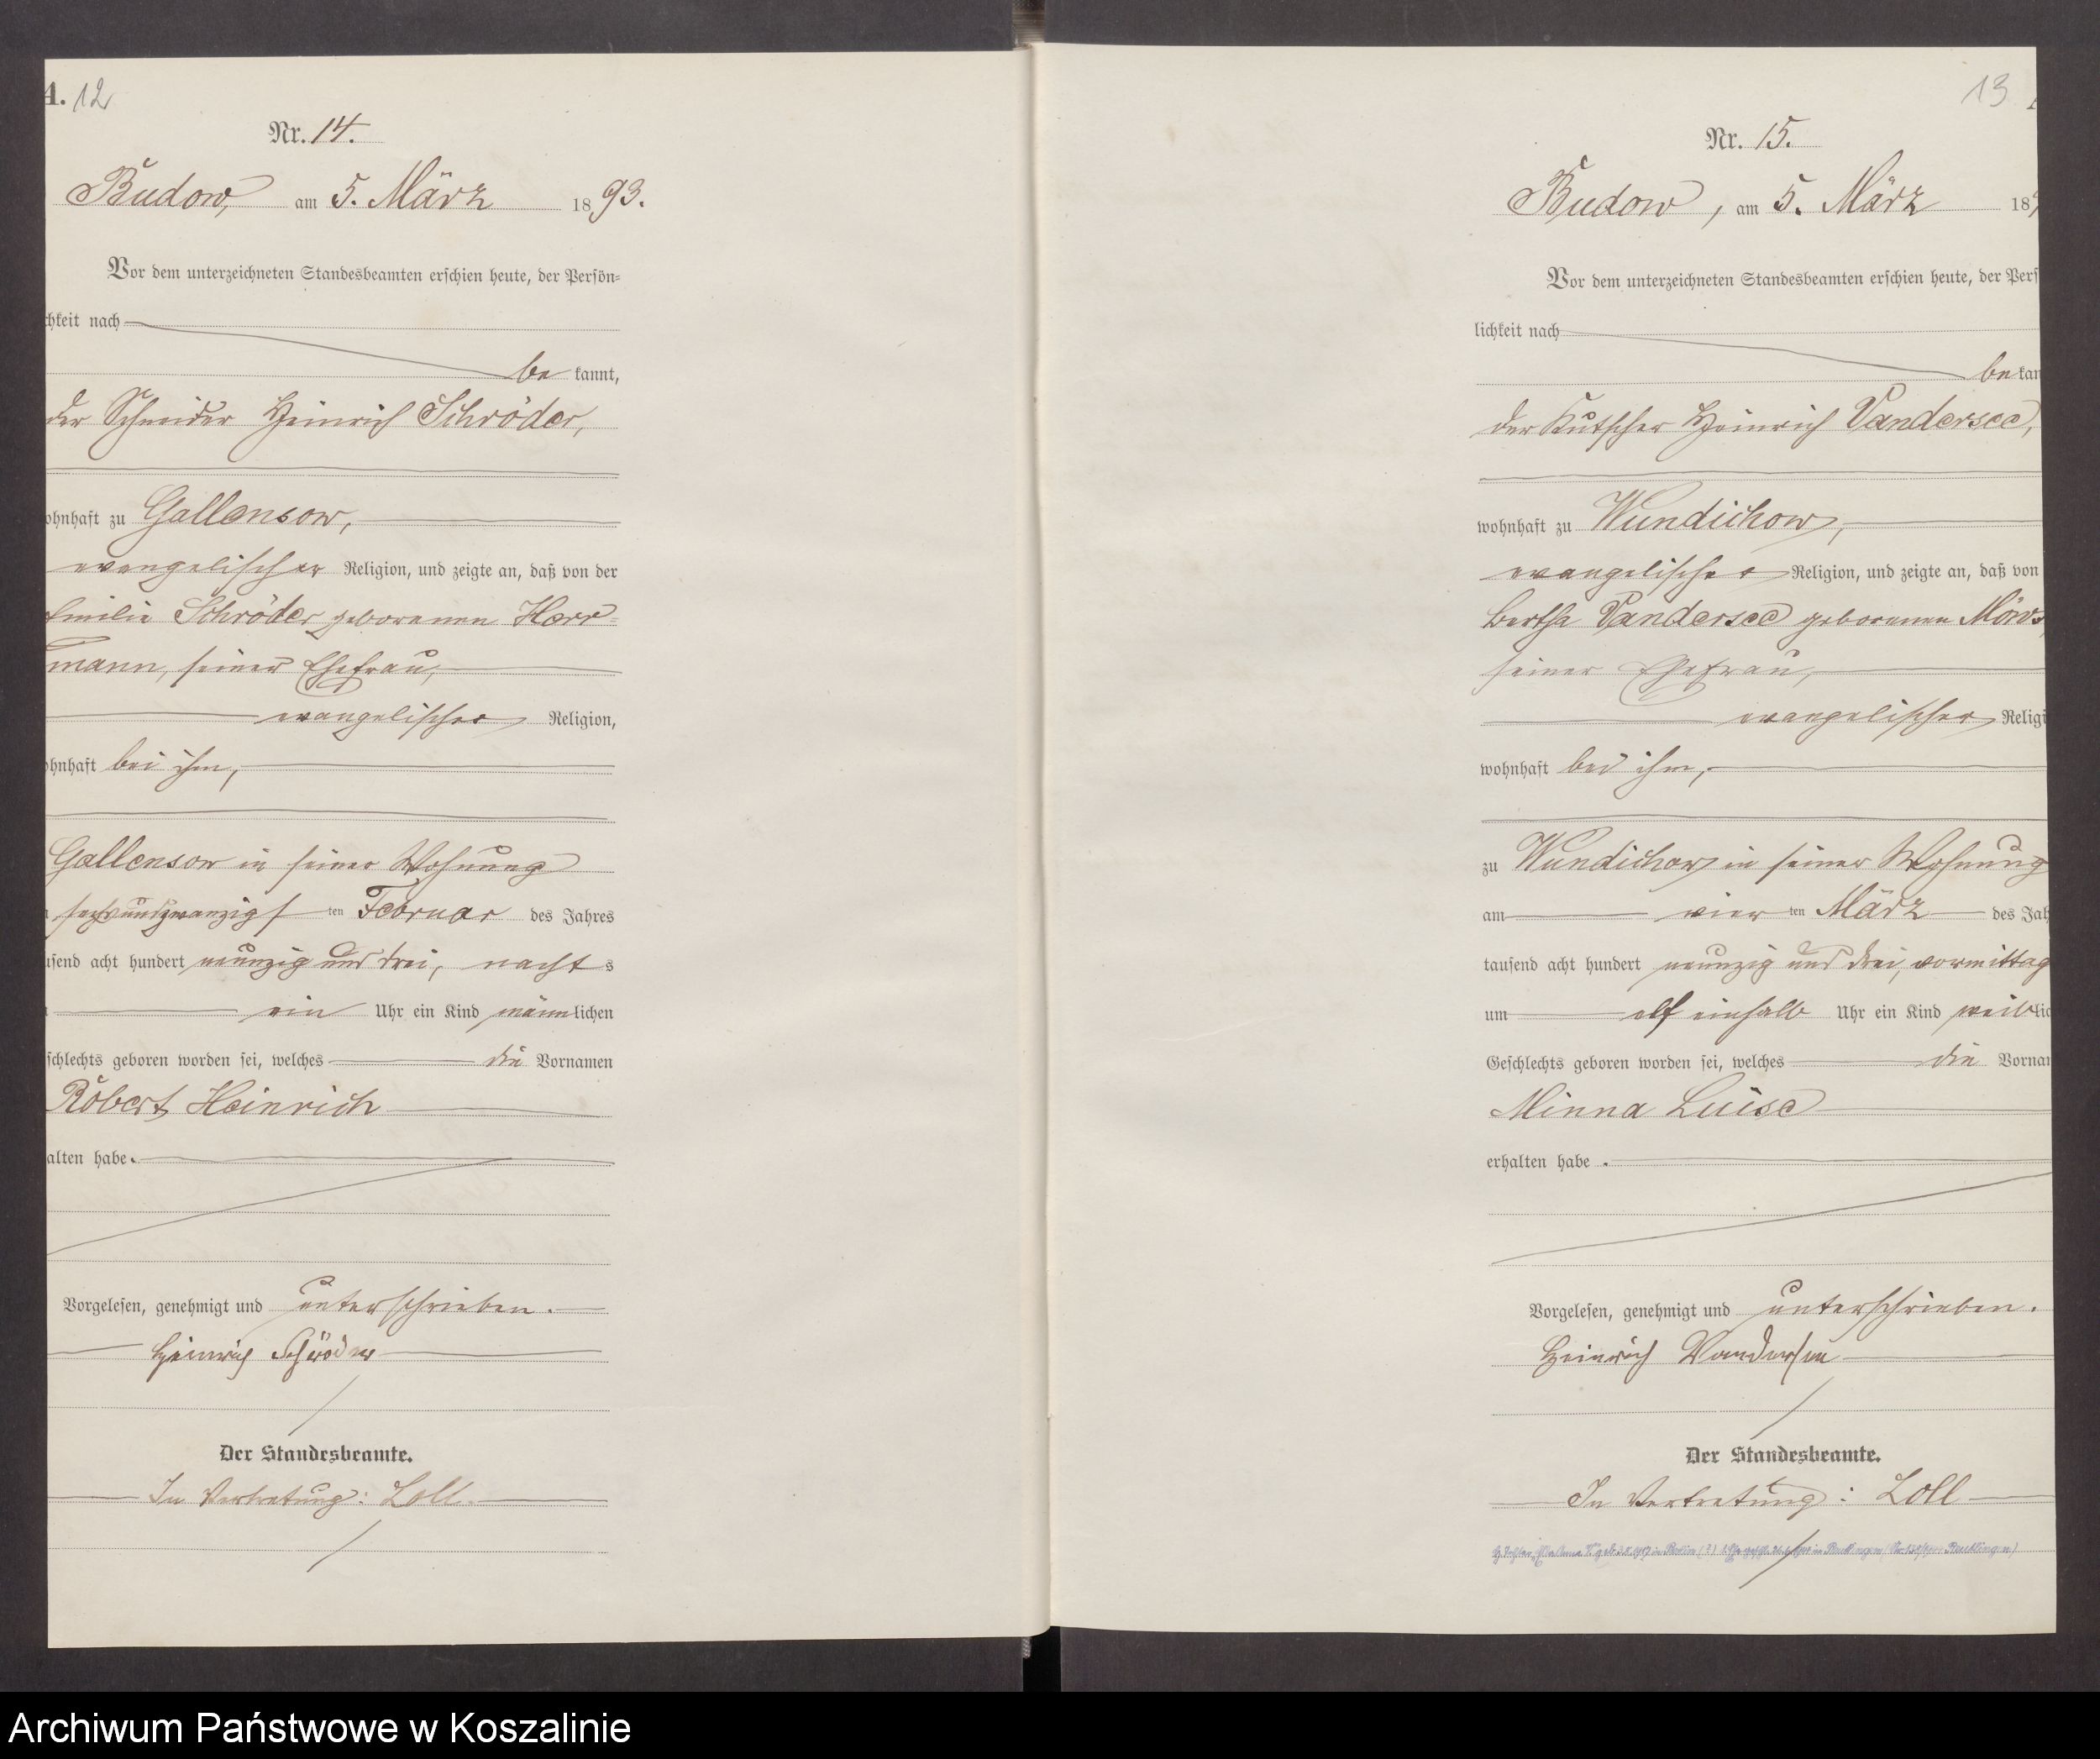 A. 12
Nr. 14.
Budow, am 5. März 1893.
Vor dem unterzeichneten Standesbeamten erschien heute, der Persön-
chkeit nach
be kannt,
der Schneider Heinrich Schröder,
ohnhaft zu Gallensow,
evangelischer Religion, und zeigte an, daß von der
Emilie Schröder geborenen Herr-
mann, seiner Ehefrau,
evangelischer Religion,
ohnhaft bei ihm,
Gallensow in seiner Wohnung
sechsundzwanzigsten Februar des Jahres
usend acht hundert neunzig und drei, nachts
ein Uhr ein Kind männlichen
schlechts geboren worden sei, welches die Vornamen
Robert Heinrich
alten habe.
Vorgelesen, genehmigt und unterschrieben.
Heinrich Schröder
Der Standesbeamte.
In Vertretung: Loll.
13
Nr. 15.
Budow, am 5. März 189
Vor dem unterzeichneten Standesbeamten erschien heute, der Pers
lichkeit nach
be kan
der Kutscher Heinrich Vandersee,
wohnhaft zu Wundichow,
evangelischer Religion, und zeigte an, daß von
Bertha Vandersee geborenen Möws,
seiner Ehefrau,
evangelischer Religi
wohnhaft bei ihm,
zu Wundichow in seiner Wohnung
am vier ten März des Jah
tausend acht hundert neunzig und drei, vormittag
um elf einhalb Uhr ein Kind weiblic
Geschlechts geboren worden sei, welches die Vornam
Minna Luise
erhalten habe.
Vorgelesen, genehmigt und unterschrieben.
Heinrich Vandersee
Der Standesbeamte.
In Vertretung: Loll
Archiwum Państwowe w Koszalinie